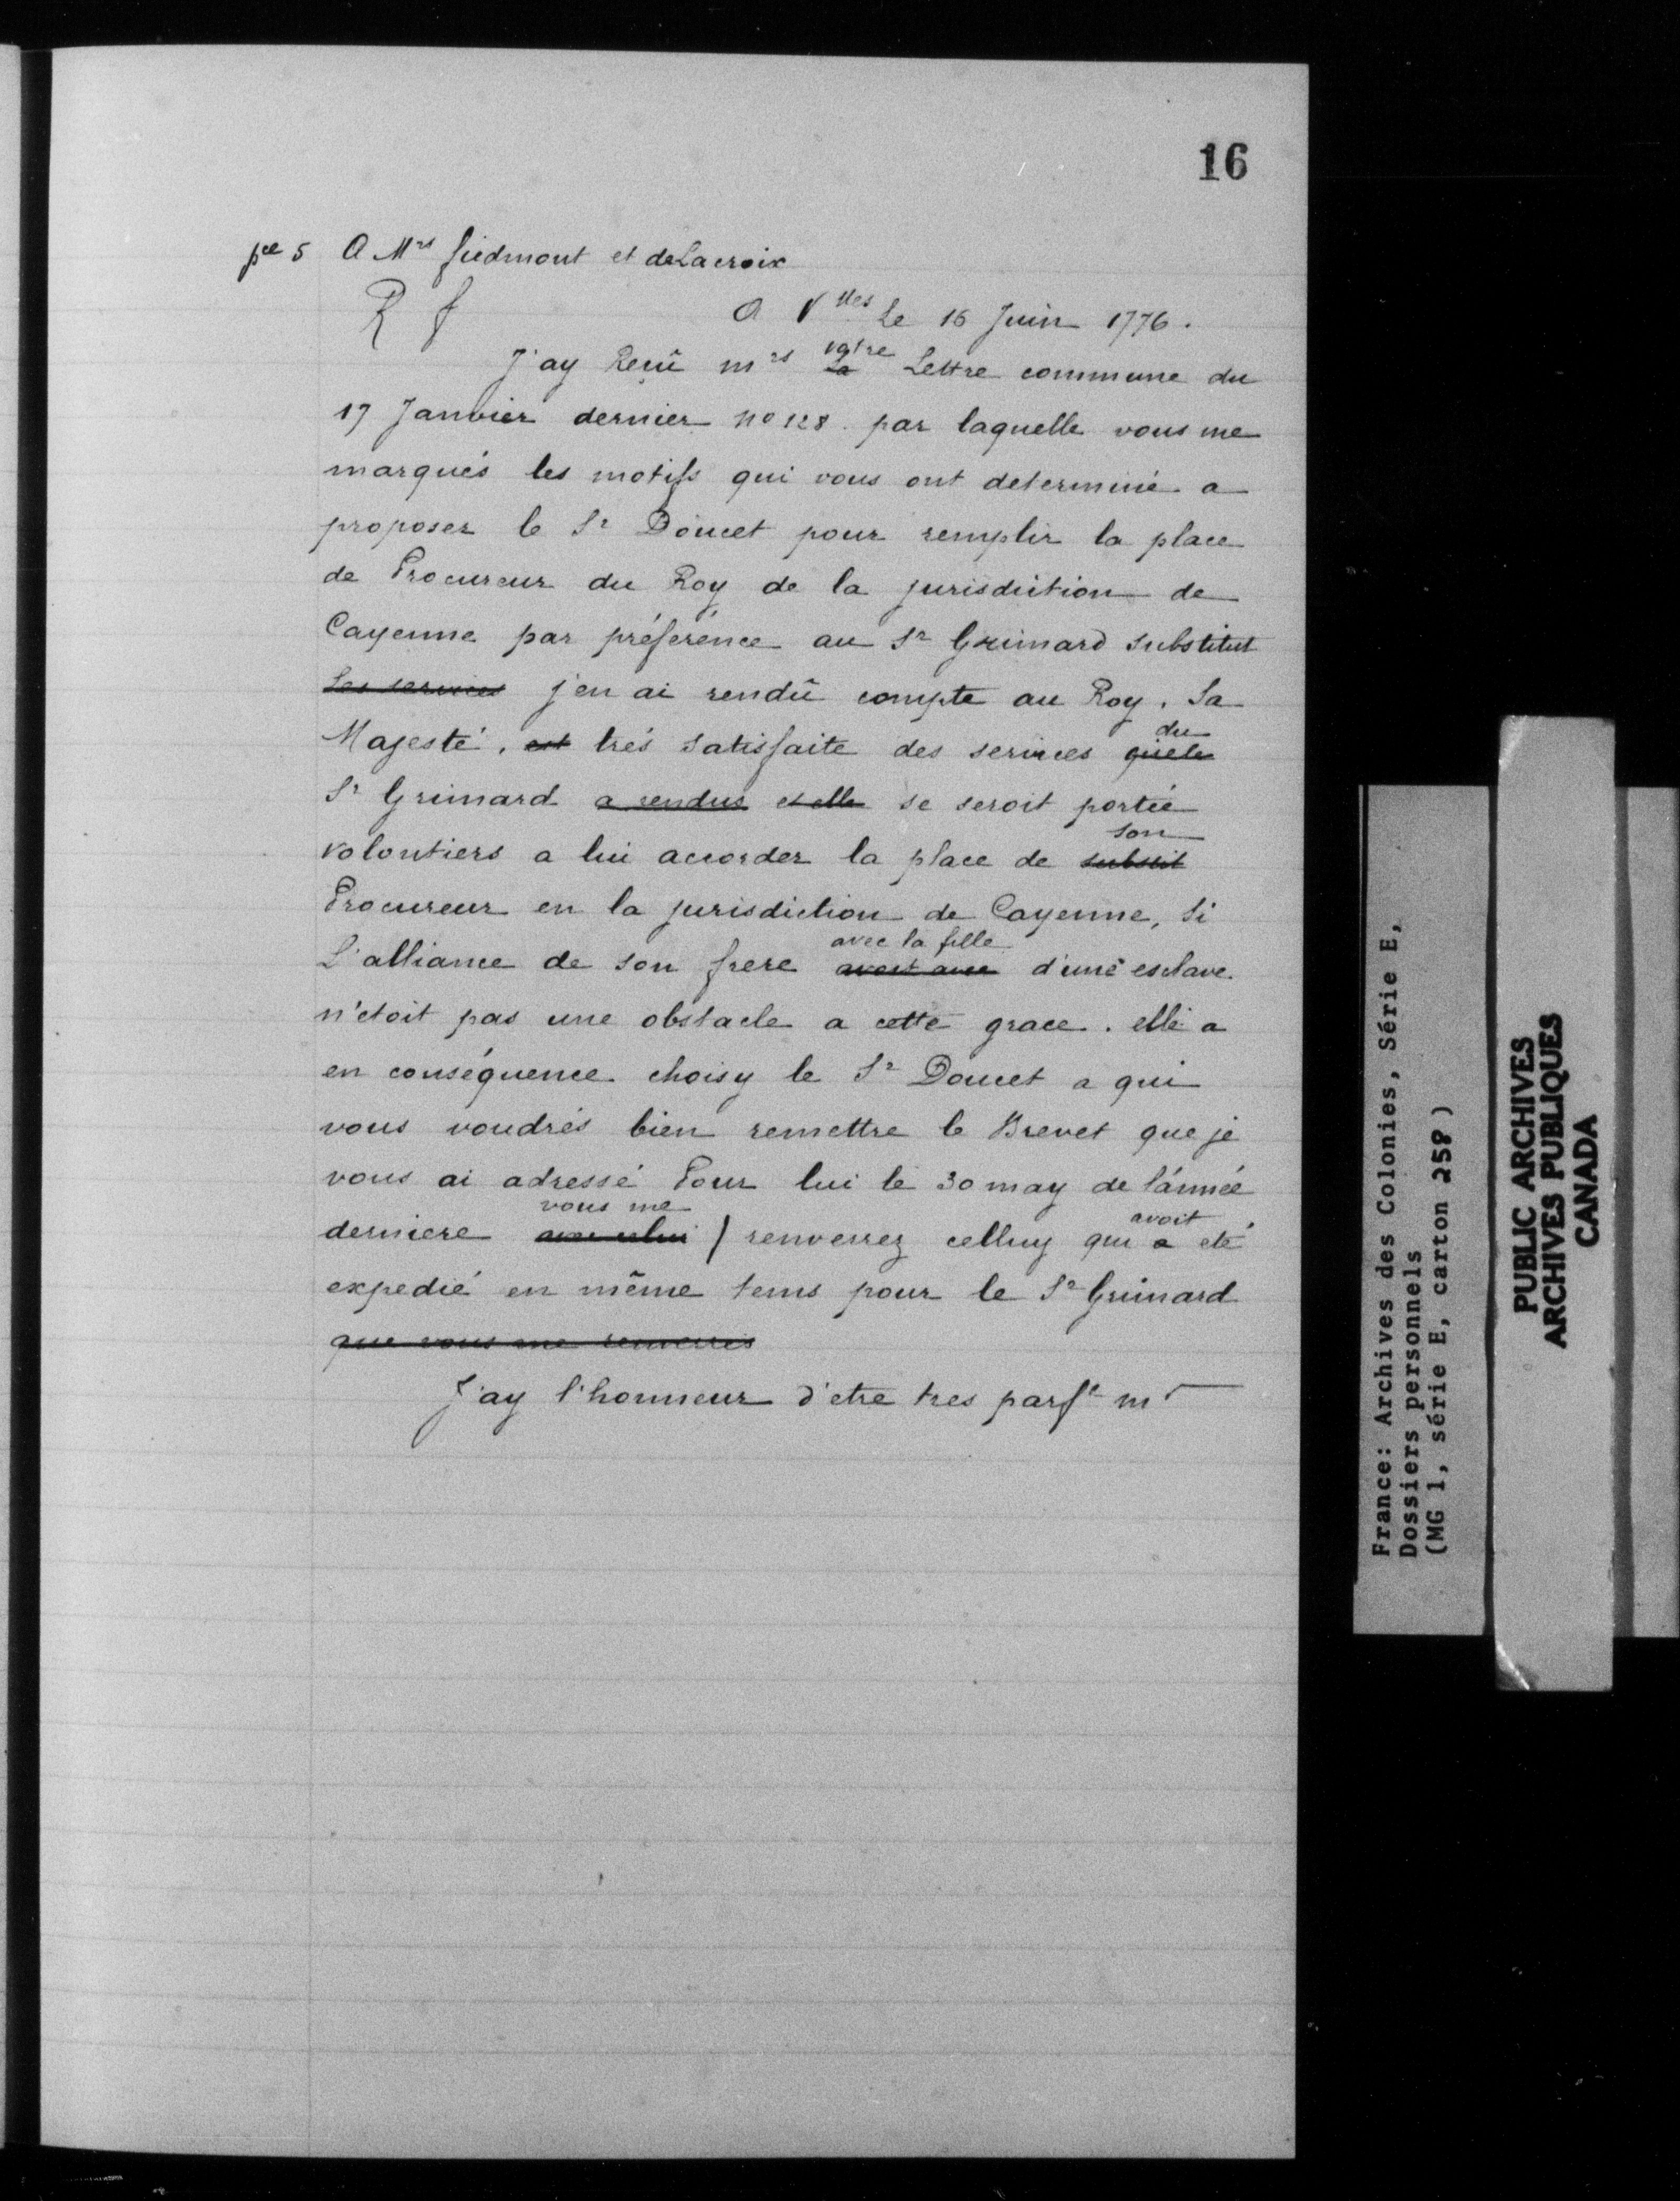 16
pce 5 A Mrs fiedmont et de Lacroix
R f A Vlles Le 16 Juin 1776.
J'ay Reçû mrs votre La Lettre commune du
17 Janvier dernier no 128. par laquelle vous me
marqués les motifs qui vous ont determiné a
proposer le Sr Doucet pour remplir la place
de Procureur du Roy de la jurisdiction de
Cayenne par préférence au Sr Grimard Substitut
Les services j'en ai rendû compte au Roy. Sa
Majesté. est trés satisfaite des services du que le
Sr Grimard a rendus et elle se seroit portée
volontiers a lui accorder la place de son
Procureur en la jurisdiction de Cayenne, Si
L'alliance de son frere avec la fille d'une esclave
n'etoit pas une obstacle a cette grace. elle a
en conséquence choisy le Sr Doucet a qui
vous voudrés bien remettre le Brevet que je
vous ai adressé Pour lui le 30 may de l'année
derniere vous me avec celui / renverrez celluy qui avoit a eté
expedié en même tems pour le Sr Grimard
que vous me renverrés
J'ay l'honneur d'etre tres parft mr
France: Archives des Colonies, Série E,
Dossiers personnels
(MG 1, série E, carton 258)
PUBLIC ARCHIVES
ARCHIVES PUBLIQUES
CANADA